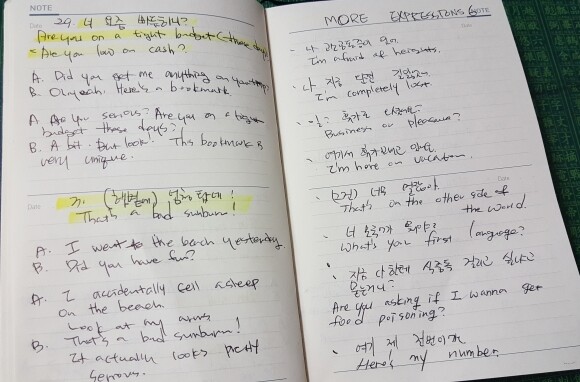 NOTE
29. 너 요즘 빠듯하니?
Are you on a tight budget (these days)
= Are you low on cash?
A. Did you get me anything on your trip?
B. Oh yeah. Here's a bookmark.
A. Are you serious? Are you on a tight
budget these days?
B. A bit. But look. This bookmark is
very unique.
Date
30. (햇볕에) 엄청 탔네!
That's a bad sunburn!
A. I went to the beach yesterday
B. Did you have fun?
A. I accidentally fell asleep
on the beach.
Look at my arms
B. That's a bad sunburn!
It actually looks pretty
serious.
MORE EXPRESSIONS 6
NOTE
Date
나 고소공포증이 있어.
I'm afraid of heights.
나 지금 완전 길 잃었어.
I'm completely lost.
Business or pleasure?
여기서 휴가 보내고 있어요.
I'm here on vacation.
(그건) 너무 멀잖아
That's on the other side of
the world.
Date
너 모국어가 뭐야?
What's your first language?
지금 나한테 식중독 걸리고 싶냐고
묻는거니?
Are you asking if I wanna get
food poisoning?
여기 제 전번이에요
Here's my number.